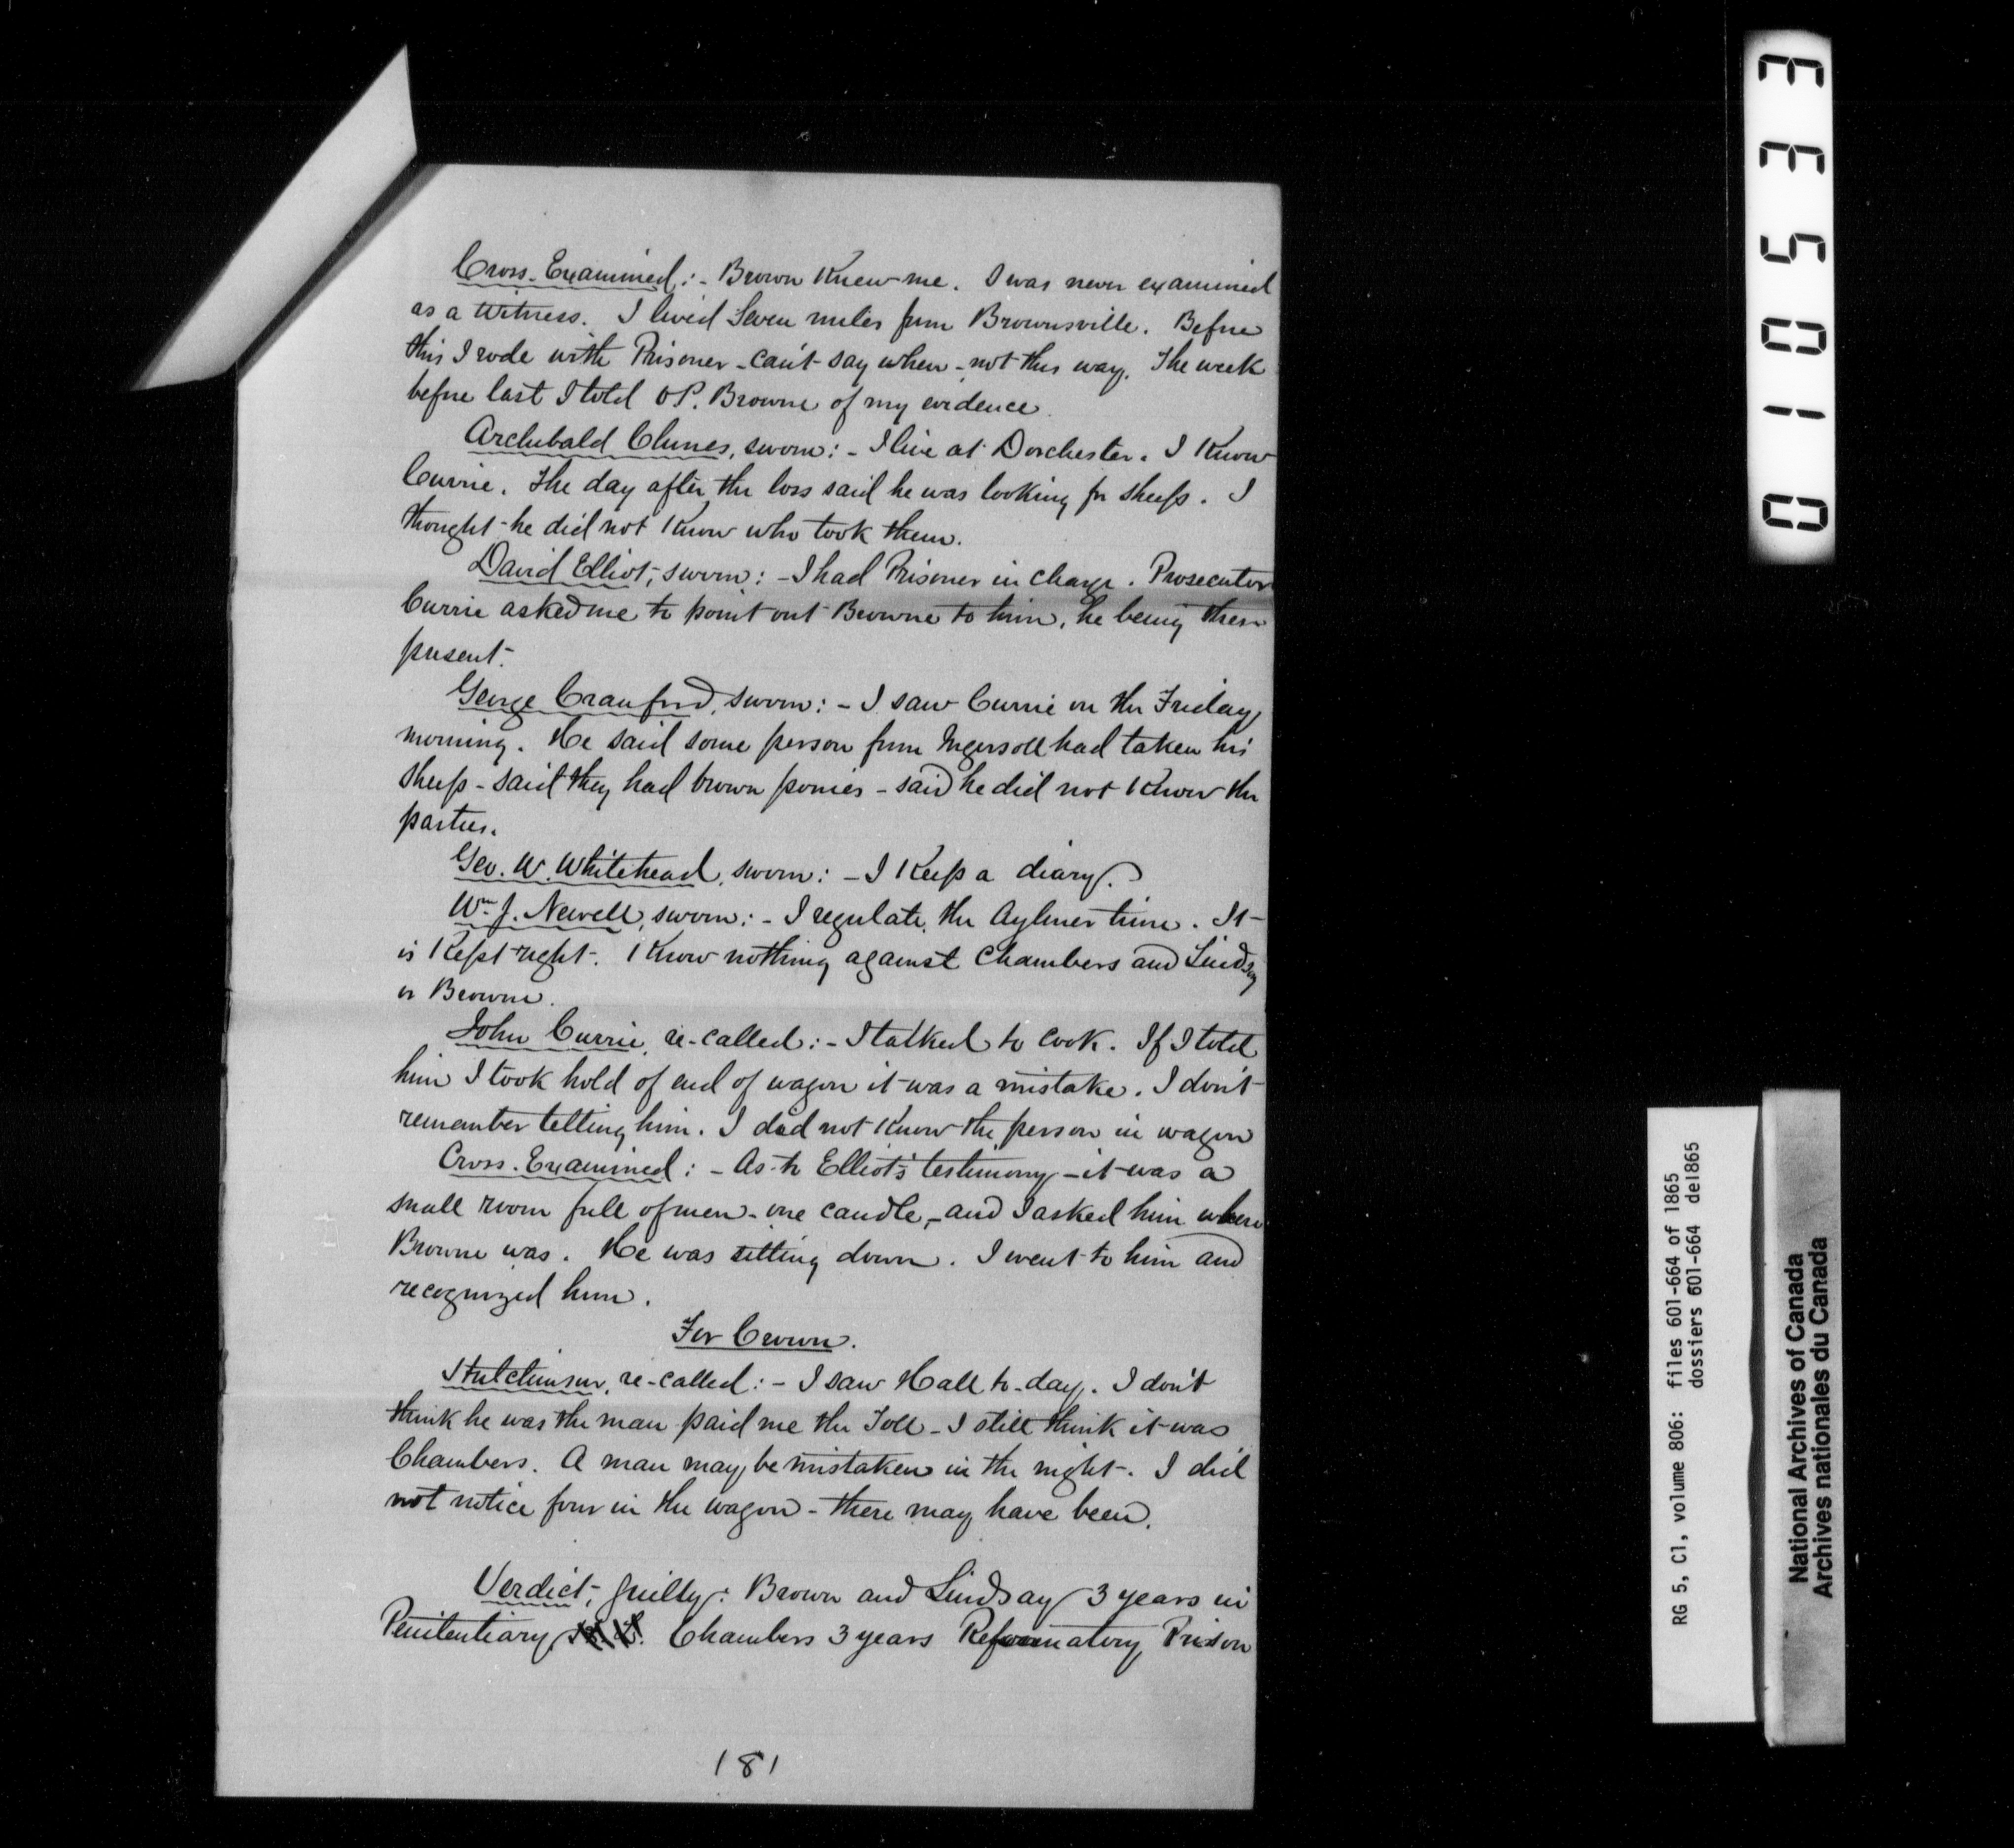 Cross-Examined:- Brown Knew me. I was never examined
as a Witness. I lived Seven miles from Brownsville. Before
this I rode with Prisoner - can't say when - not this way. The week
before last I told O.P. Browne of my evidence.
Archibald Clunes, sworn:- I live at Dorchester. I Know
Currie. The day after the loss said he was looking for sheep. I
thought he did not Know who took them.
David Elliot, sworn:- I had Prisoner in charge. Prosecutor
Currie asked me to point out Browne to him, he being there
present.
George Crawford, sworn:- I saw Currie on the Friday
morning. He said some person from Ingersoll had taken his
sheep - said they had brown ponies - said he did not Know the
parties.
Geo. W. Whitehead, sworn:- I Keep a diary.
Wm. J. Newell, sworn:- I regulate the Aylmer time. It
is Kept right. I Know nothing against Chambers and Lindsay
or Browne.
John Currie, re-called:- I talked to Cook. If I told
him I took hold of end of wagon it was a mistake. I don't
remember telling him. I did not Know the person in wagon
Cross-Examined:- As to Elliot's testimony - it was a
small room full of men - one candle, - and I asked him where
Browne was. He was sitting down. I went to him and
recognized him.
For Crown.
Hutchinson, re-called:- I saw Hall to-day. I don't
think he was the man paid me the Toll - I still think it was
Chambers. A man may be mistaken in the night. I did
not notice four in the wagon - there may have been.
Verdict, guilty: Brown and Lindsay 3 years in
Penitentiary Chambers 3 years Reformatory Prison
181
010533
RG 5, C1, volume 806: files 601-664 of 1865
dossiers 601-664 de1865
National Archives of Canada
Archives nationales du Canada